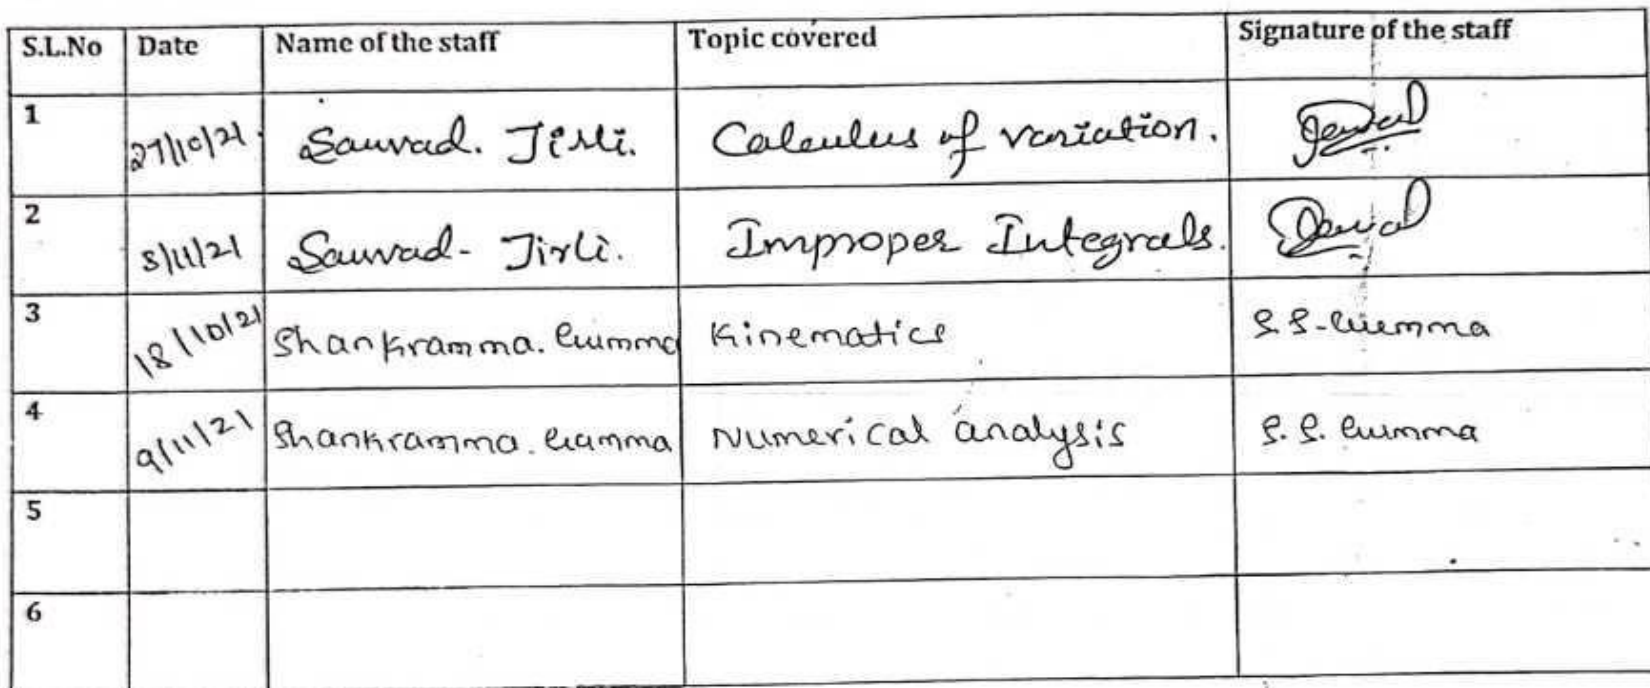 S.L.No Date Name of the staff Topic covered Signature of the staff
1 27/10/21. Sauvad. Jirli. Calculus of variation.
2 /11/21 Sauvad- Jirli. Improper Integrals.
3 18/10/21 Shankramma. Kinematics S S-
4 9/11/21 Shankramma. Numerical analysis S. S.
5
6